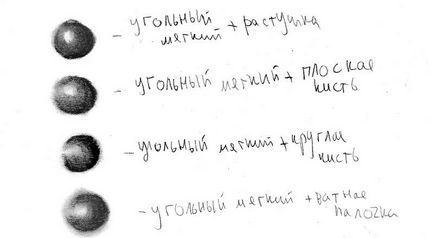 - угольный
мягкий + растушка
- угольный мягкий + плоская
кисть
- угольный мягкий + круглая
кисть
- угольный мягкий + ватная
палочка